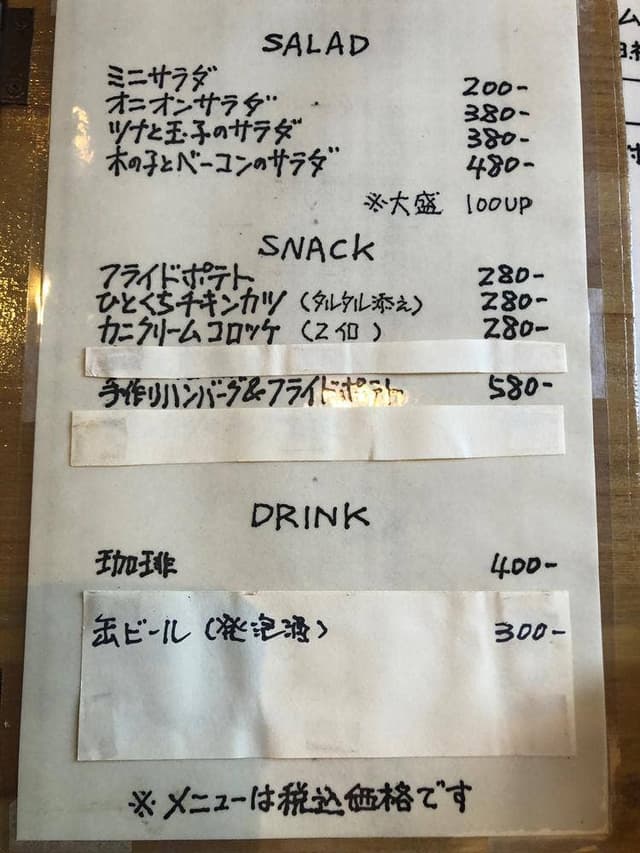 SALAD
ミニサラダ 200-
オニオンサラダ 380-
ツナと玉子のサラダ 380-
木の子とベーコンのサラダ 480-
※大盛 100UP
SNACK
フライドポテト 280-
ひとくちチキンカツ (タルタル添え) 280-
カニクリームコロッケ (2イロ) 280-
手作りハンバーグ&フライドポテト 580-
DRINK
珈琲 400-
缶ビール (発泡酒) 300-
※メニューは税込価格です